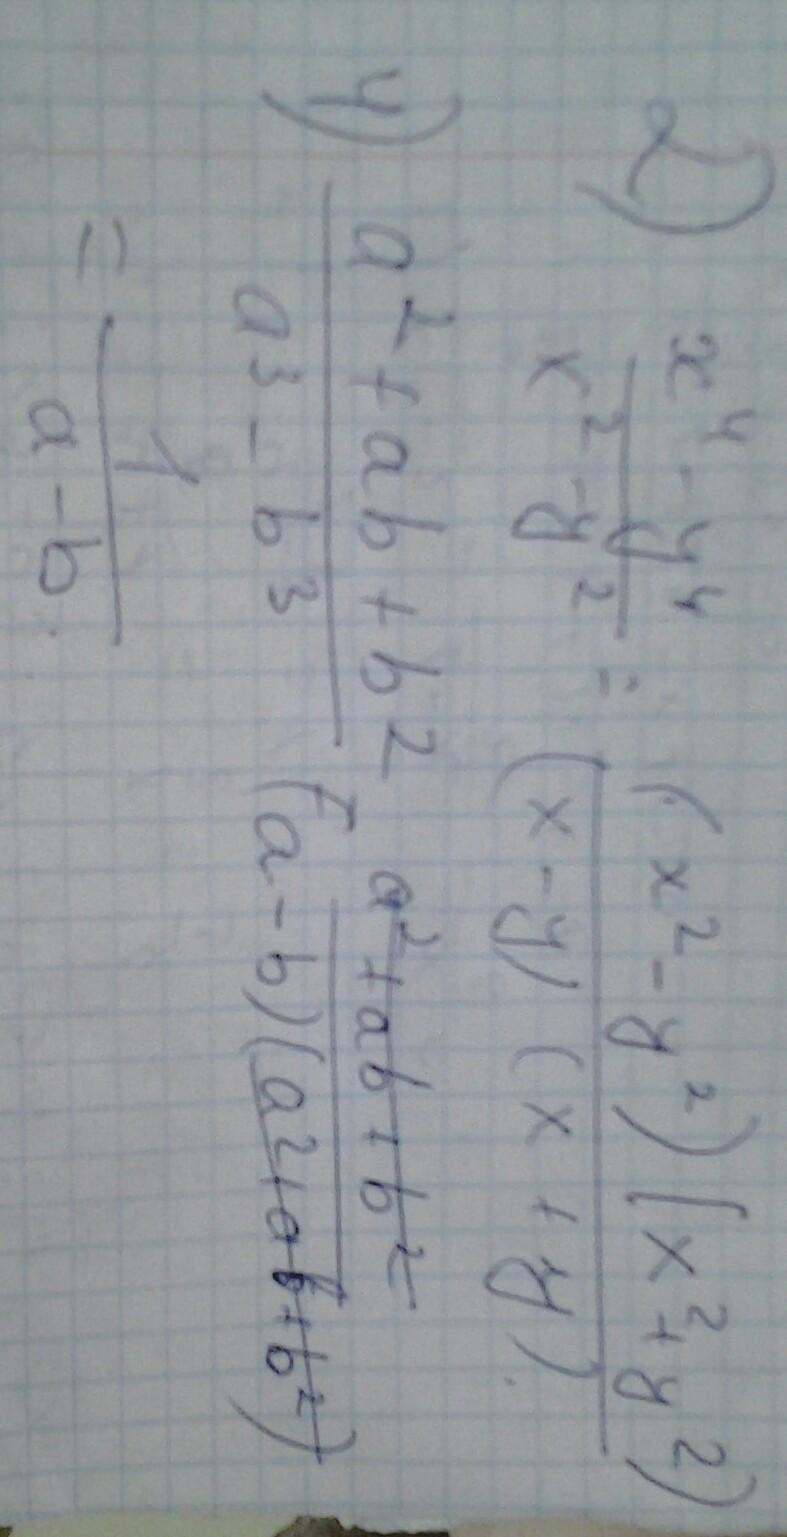 2) x⁴-y⁴/x²-y² = (x²-y²)(x²+y²)/(x-y)(x+y).
4) a²+ab+b²/a³-b³ = a²+ab+b²/(a-b)(a²+ab+b²)
= 1/a-b.